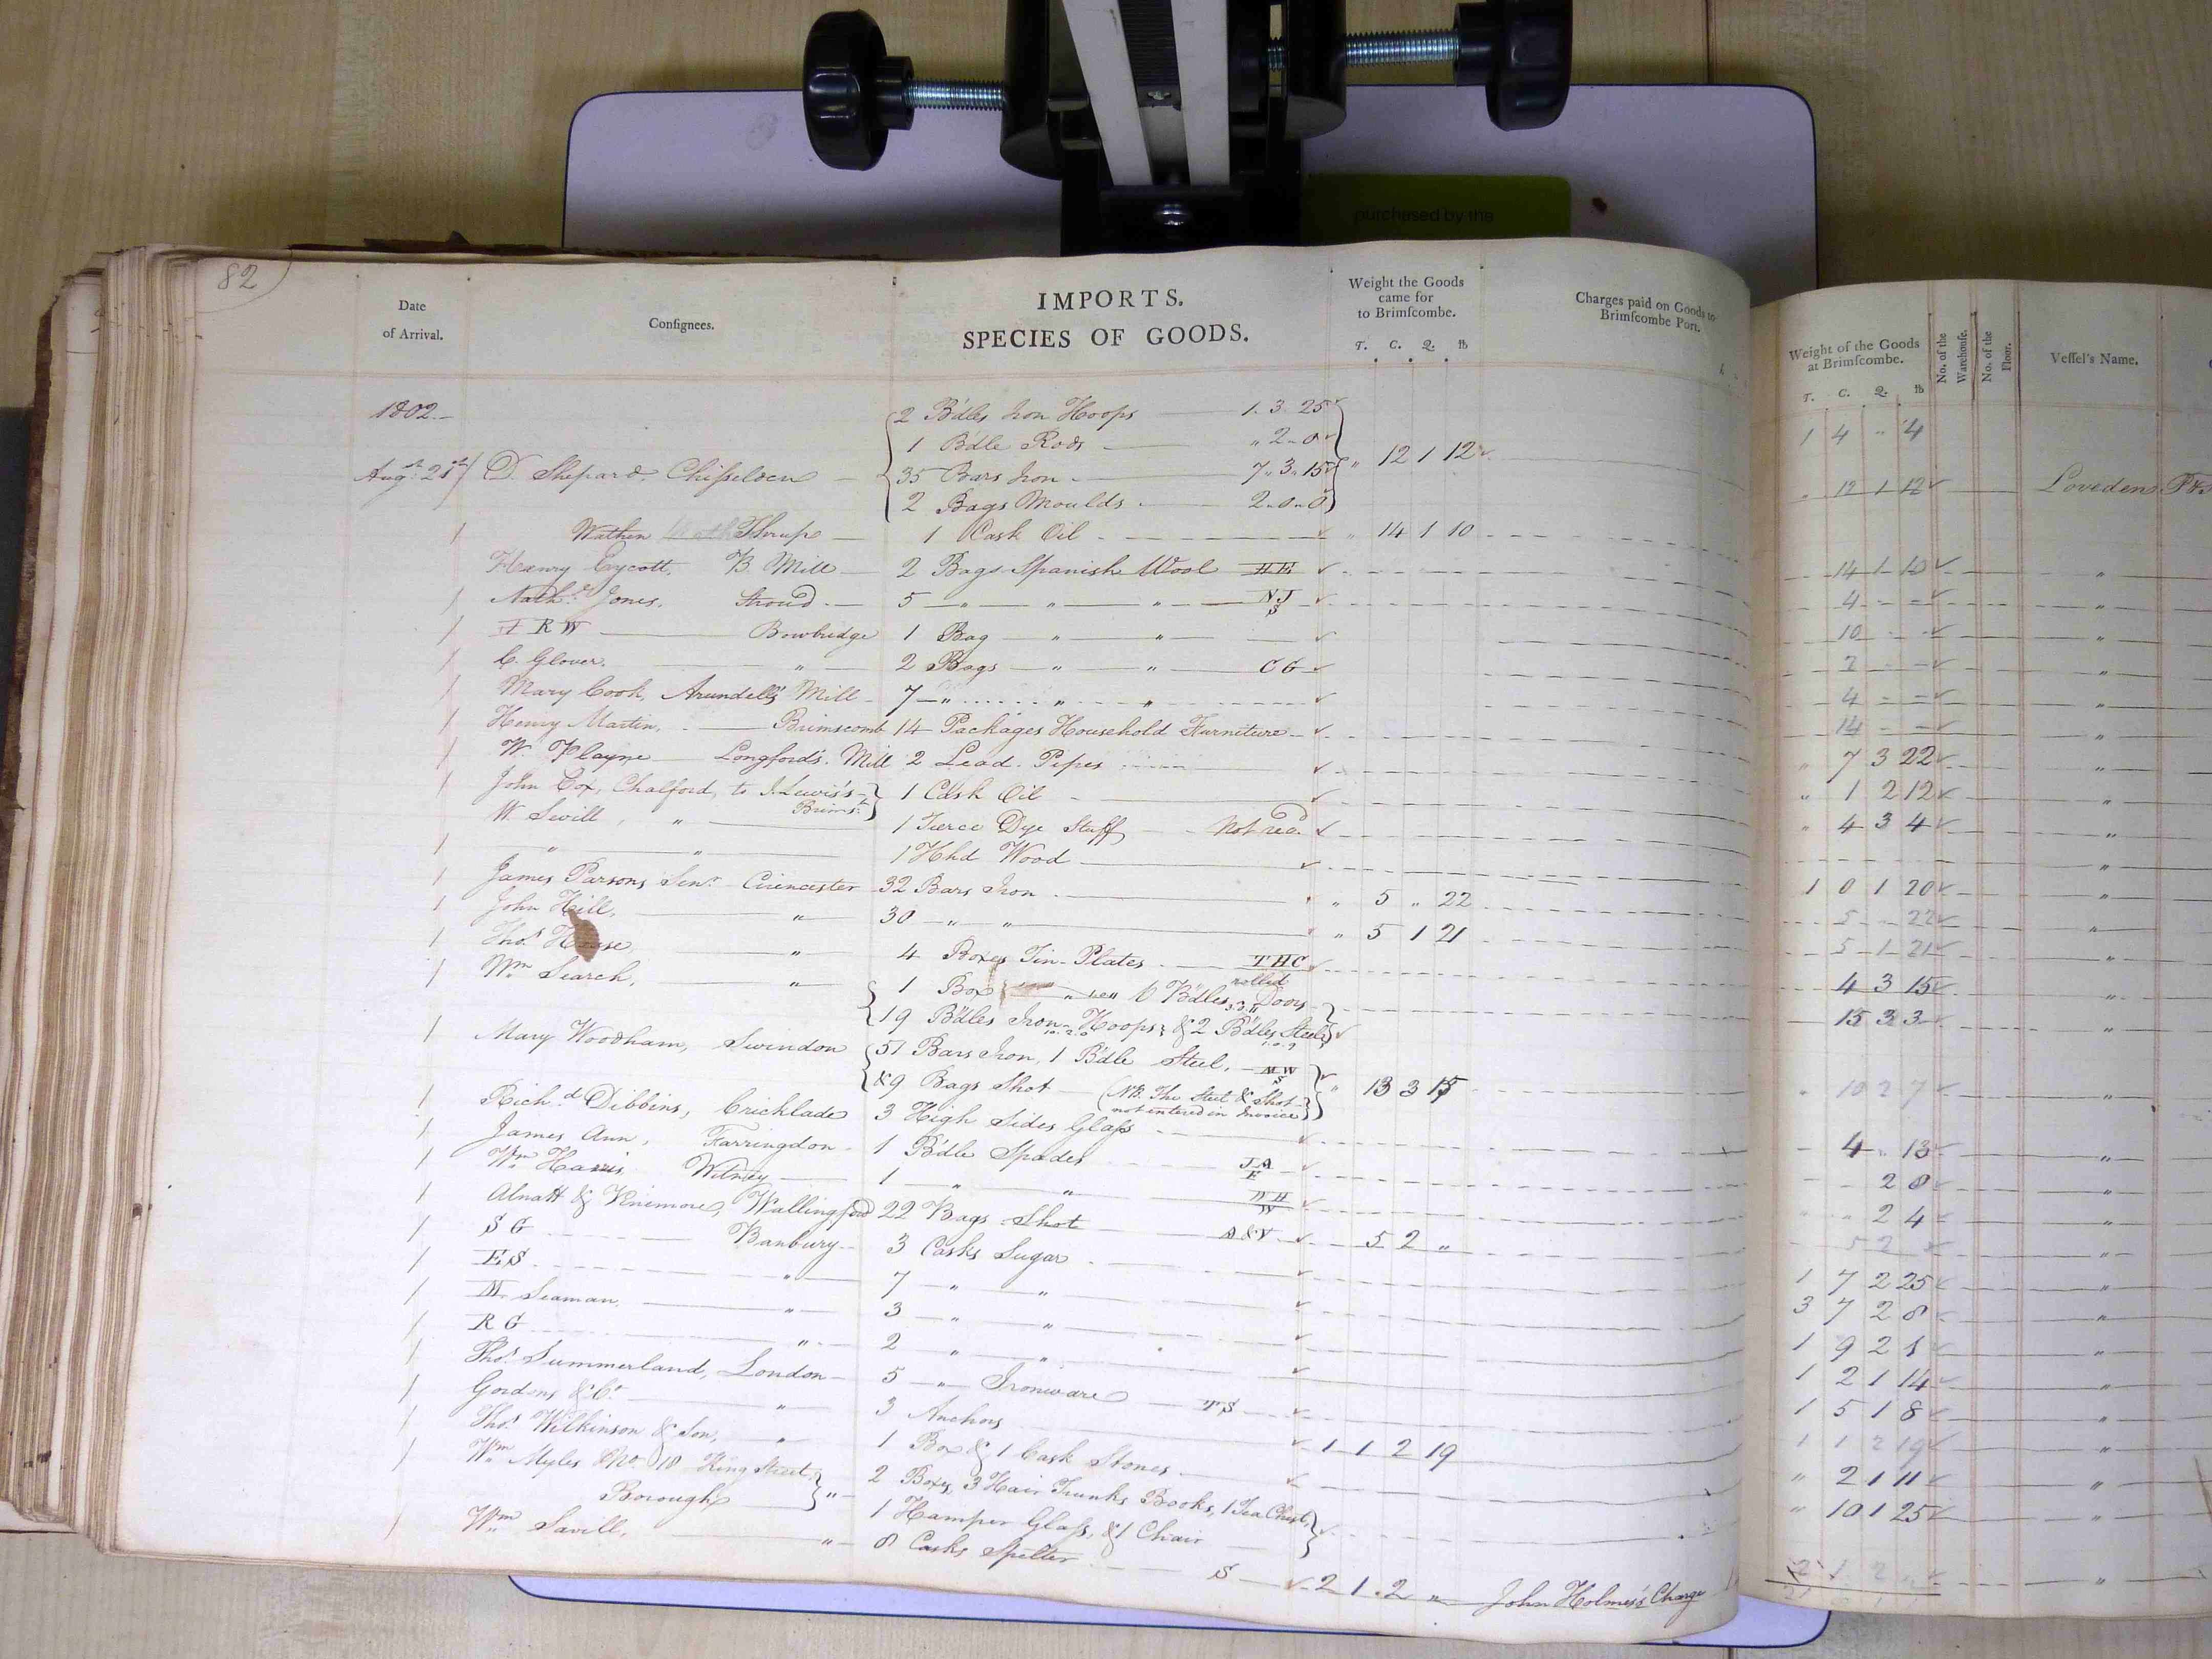 purchased by the
82
Date of Arrival.
Consignees.
IMPORTS.
SPECIES OF GOODS.
Weight the Goods came for to Brimscombe.
T. C. Q. lb
Charges paid on Goods to Brimscombe Port.
Weight of the Goods at Brimscombe.
T. C. Q. lb
No. of the Warehouse.
No. of the Floor.
Vessel's Name.
1802.
2 Bdles Iron Hoops 1. 3. 25
1 4 " 4
1 Bdle Rods " 2 - 0
Augst 21st D. Shepard, Chisseldon 35 Bars Iron 7. 3. 15 " 12 1 12
" 12 1 12 Loveden
2 Bags Moulds 2 - 0 - 0
Wathen Thrupp 1 Cask Oil " 14 1 10
14 1 10 "
Henry Eycott, B. Mill 2 Bags Spanish Wool HE
4 - - "
Nathl Jones, Stroud 5 " " " NJ S
10 - - "
I R W Bowbridge 1 Bag " "
2 - - "
C. Glover, " 2 Bags " " CG
4 - - "
Mary Cook, Arundell's Mill 7 " " "
14 - - "
Henry Martin, Brimscomb 14 Packages Household Furniture
" 7 3 22 "
W. Playne Longfords Mill 2 Lead Pipes
" 1 2 12 "
John Cox, Chalford, to J. Lewis's Brimst 1 Cask Oil
" 4 3 4 "
W. Sevill, " 1 Tierce Dye Stuff Not recd
" " 1 Hhd Wood
1 0 1 20 "
James Parsons Senr Cirencester 32 Bars Iron " 5 " 22
5 - 22 "
John Hill, " 30 " " " 5 1 21
5 1 21 "
Thos House " 4 Boxes Tin Plates THC
4 3 15 "
Wm Search, " 1 Box 6 Bdles rolled Doors
15 3 3 "
19 Bdles Iron Hoops & 2 Bdles Steel
Mary Woodham, Swindon 51 Bars Iron, 1 Bdle Steel, MW S
& 9 Bags Shot (NB. The Steel & Shot not entered in Invoice) " 13 3 15
" 10 2 7 "
Richd Dibbins, Cricklade 3 High Sides Glass
4 " 13 "
James Ann, Farringdon 1 Bdle Spades JA F
2 0 "
Wm Harris Witney 1 " " WH W
2 4 "
Alnatt & Venimore, Wallingford 22 Bags Shot A&V 5 2 "
5 2 "
S G Banbury 3 Casks Sugar
1 7 2 25 "
E S " 7 " "
3 7 2 8 "
M. Seaman " 3 " "
1 9 2 1 "
R G " 2 " "
1 2 1 14 "
Thos Summerland, London 5 " Ironware TS
1 5 1 8 "
Gordons & Co " 3 Anchors 1 1 2 19
1 1 2 19 "
Thos Wilkinson & Son, " 1 Box & 1 Cask Stones
" 2 1 11 "
Wm Myles No 10 King Street, Borough " 2 Boxes, 3 Hair Trunks Books, 1 Tea Chest,
" 10 1 25 "
1 Hamper Glass, & 1 Chair
Wm Savill, " 8 Casks Spelter S 2 1 2 " John Holmes's Charge
2 1 2 "